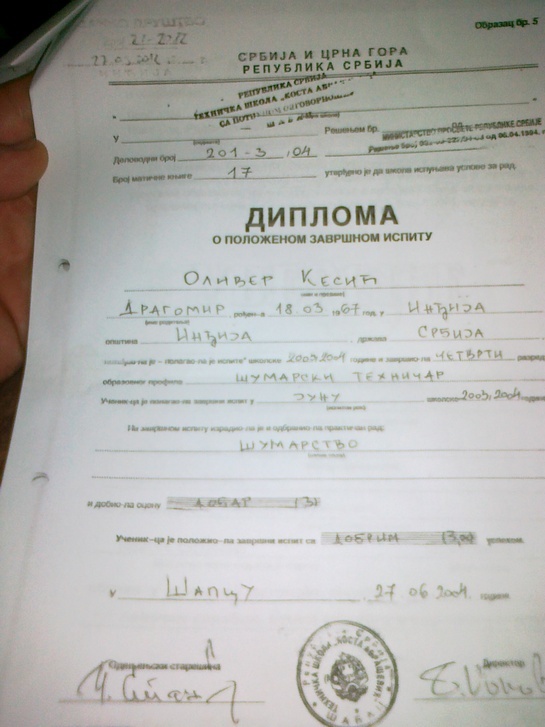 Образац бр. 5
21-2012
27.03.2012
СРБИЈА И ЦРНА ГОРА
РЕПУБЛИКА СРБИЈА
РЕПУБЛИКА СРБИЈА
ТЕХНИЧКА ШКОЛА „КОСТА
СА
У
Решењем бр.
МИНИСТАРСТВО ПРОСВЕТЕ РЕПУБЛИКЕ СРБИЈЕ
Деловодни број 201-3 , 04
Број матичне књиге 17 утврђено је да школа испуњава услове за рад.
ДИПЛОМА
О ПОЛОЖЕНОМ ЗАВРШНОМ ИСПИТУ
ОЛИВЕР КЕСИЋ
(име и презиме)
ДРАГОМИР рођен-а 18 03 1967 год. у ИНЂИЈА
(име родитеља)
општина ИНЂИЈА држава СРБИЈА
је – полагао-ла је испите школске 2003/2004 године и завршио-ла ЧЕТВРТИ разред
образовног профила ШУМАРСКИ ТЕХНИЧАР
Ученик-ца је полагао-ла завршни испит у ЈУНУ школске 2003/2004 године
На завршном испиту израдио-ла је и одбранио-ла практичан рад:
ШУМАРСТВО
и добио-ла оцену ДОБАР (3)
Ученик-ца је положио-ла завршни испит са ДОБРИМ (3,00) успехом.
У ШАПЦУ , 27 06 2004. године
Одељенски старешина
Директор
ТЕХНИЧКА ШКОЛА „КОСТА АБРАШЕВИЋ"